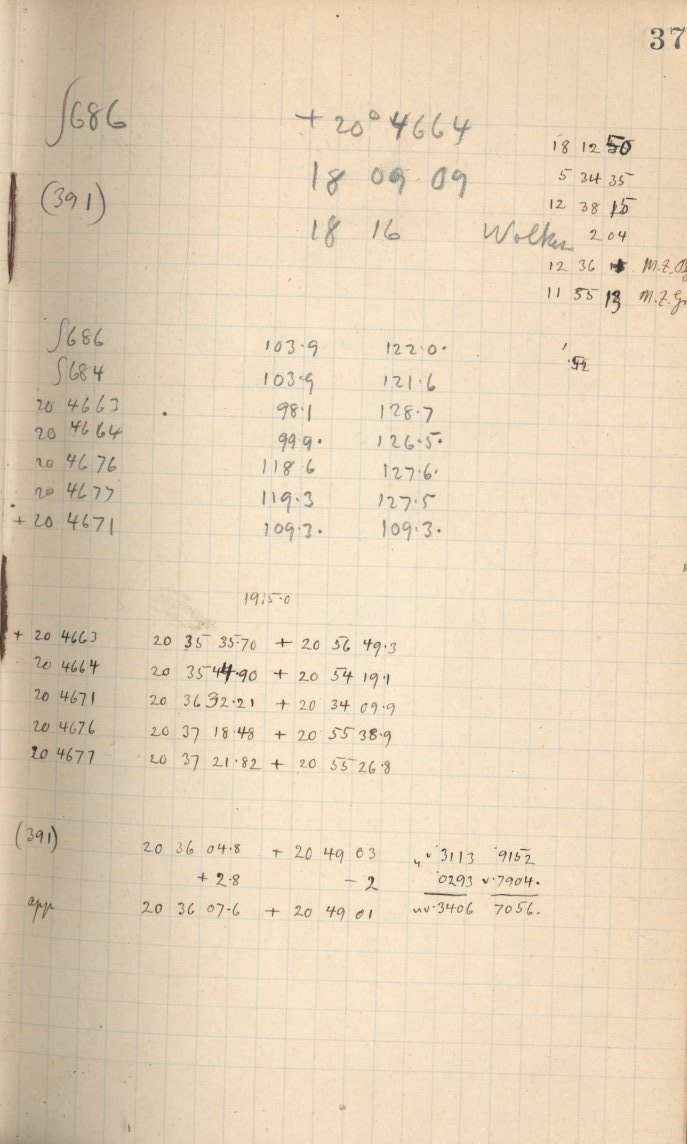 37
∫686 + 20° 4664
18 12 50
18 09 09
5 34 35
(391)
12 38 15
18 16
2 04
12 36 M.Z.
11 55 13 M.Z. Gr
∫686 103.9 122.0.
∫684 103.9 121.6
20 4663 98.1 128.7
20 4664 99.9. 126.5.
20 4676 118.6 127.6.
20 4677 119.3 127.5
+ 20 4671 109.3. 109.3.
1915.0
+ 20 4663 20 35 35.70 + 20 56 49.3
20 4664 20 35 44.90 + 20 54 19.1
20 4671 20 36 32.21 + 20 34 09.9
20 4676 20 37 18.48 + 20 55 38.9
20 4677 20 37 21.82 + 20 55 26.8
(391) 20 36 04.8 + 20 49 03 3113 9152
+ 2.8 - 2 0293 7904.
app 20 36 07.6 + 20 49 01 3406 7056.